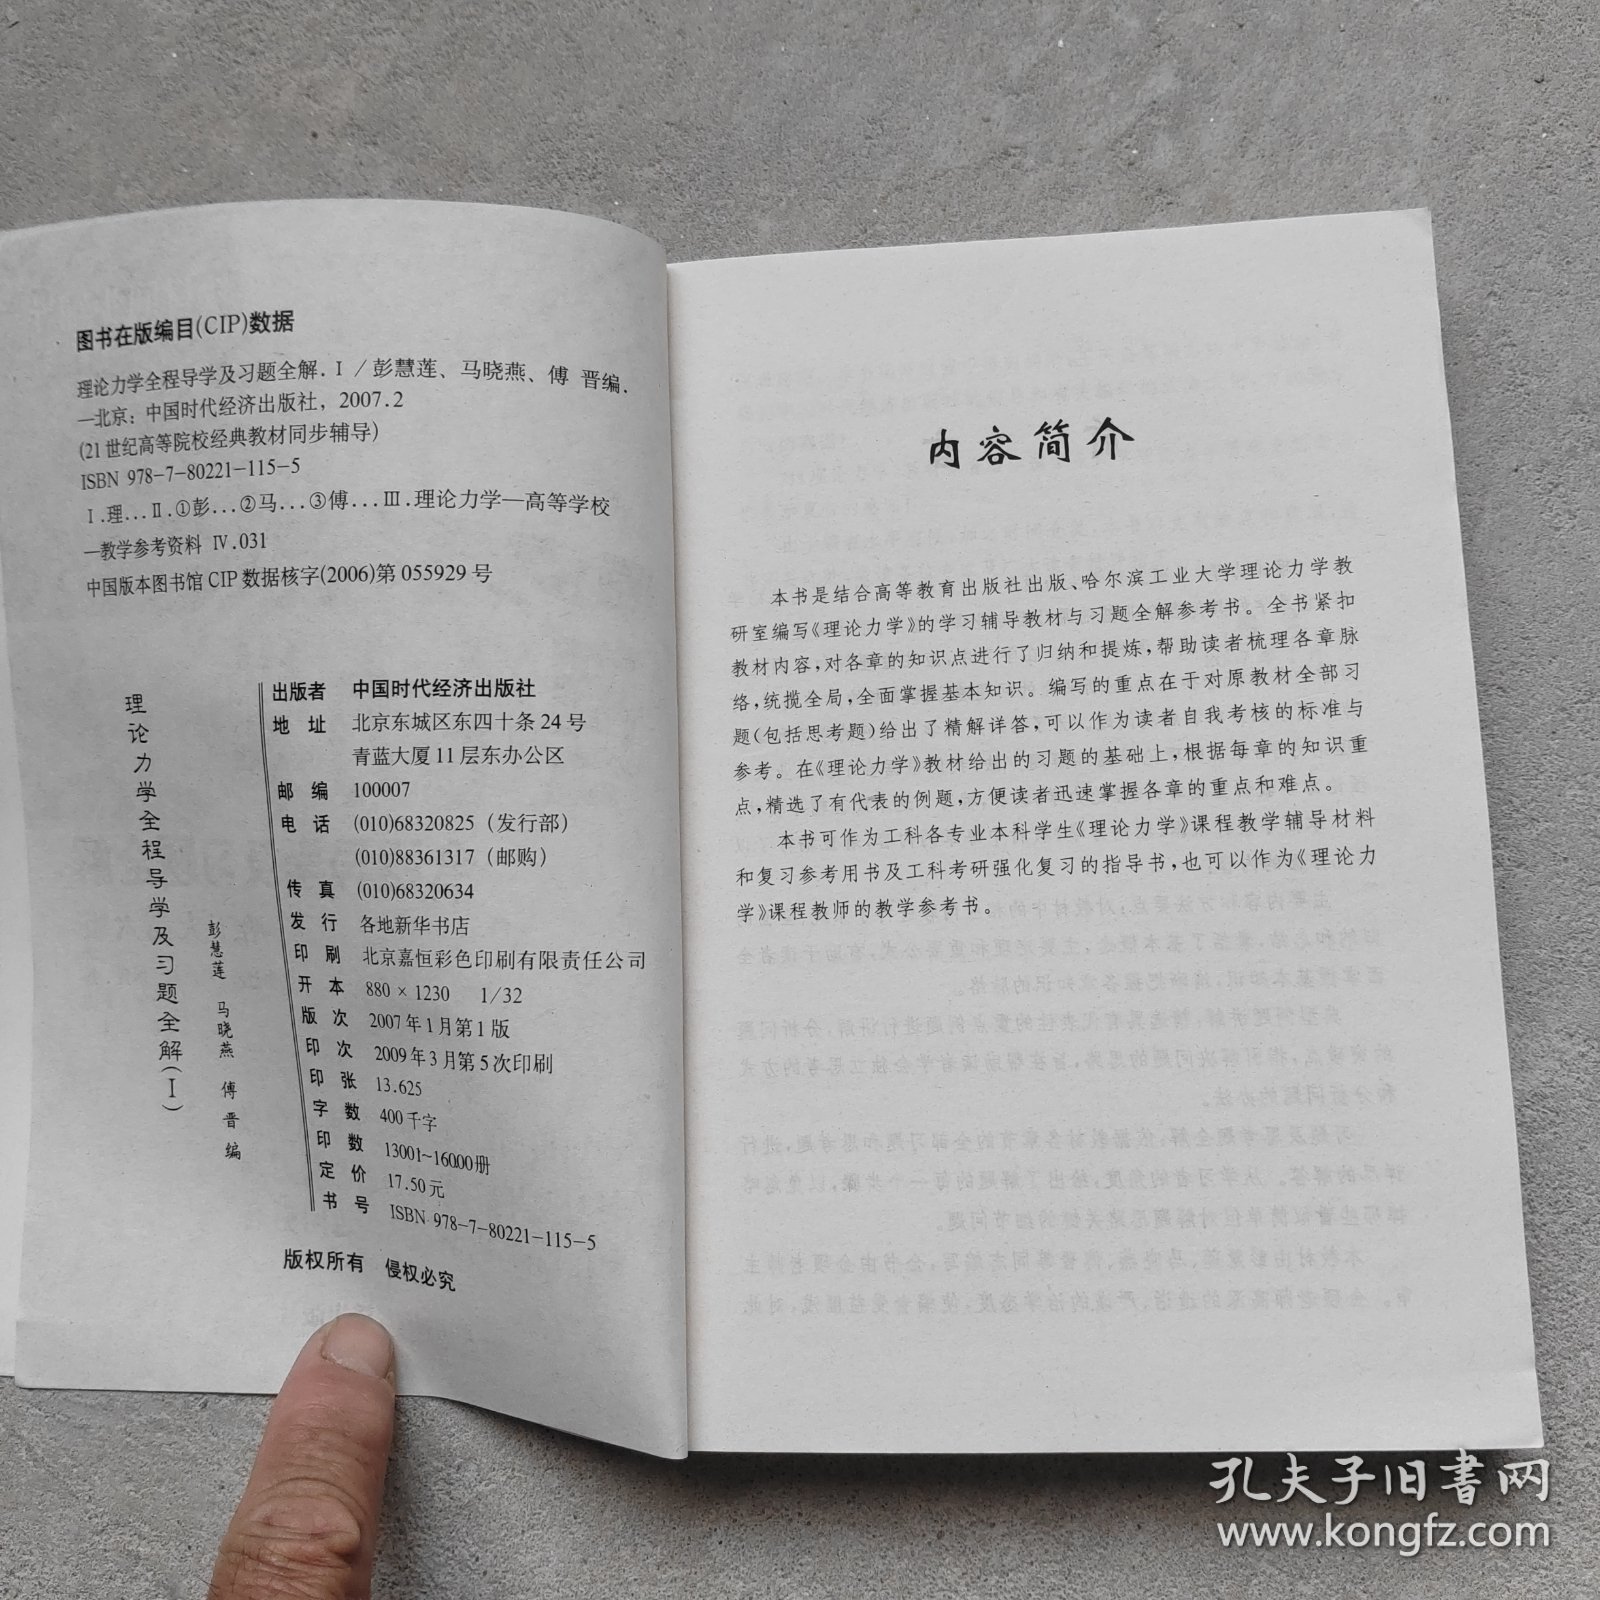 图书在版编目(CIP)数据
理论力学全程导学及习题全解.Ⅰ/彭慧莲、马晓燕、傅 晋编.
—北京：中国时代经济出版社，2007.2
(21世纪高等院校经典教材同步辅导)
ISBN 978-7-80221-115-5
Ⅰ.理…Ⅱ.①彭…②马…③傅…Ⅲ.理论力学—高等学校
—教学参考资料 Ⅳ.031
中国版本图书馆CIP数据核字(2006)第055929号
理论力学全程导学及习题全解(Ⅰ)
彭慧莲 马晓燕 傅晋编
出版者 中国时代经济出版社
地址 北京东城区东四十条24号
青蓝大厦11层东办公区
邮编 100007
电话 (010)68320825（发行部）
(010)88361317（邮购）
传真 (010)68320634
发行 各地新华书店
印刷 北京嘉恒彩色印刷有限责任公司
开本 880×1230 1/32
版次 2007年1月第1版
印次 2009年3月第5次印刷
印张 13.625
字数 400千字
印数 13001~16000册
定价 17.50元
书号 ISBN 978-7-80221-115-5
版权所有 侵权必究
内容简介
本书是结合高等教育出版社出版、哈尔滨工业大学理论力学教
研室编写《理论力学》的学习辅导教材与习题全解参考书。全书紧扣
教材内容,对各章的知识点进行了归纳和提炼,帮助读者梳理各章脉
络,统揽全局,全面掌握基本知识。编写的重点在于对原教材全部习
题(包括思考题)给出了精解详答,可以作为读者自我考核的标准与
参考。在《理论力学》教材给出的习题的基础上,根据每章的知识重
点,精选了有代表的例题,方便读者迅速掌握各章的重点和难点。
本书可作为工科各专业本科学生《理论力学》课程教学辅导材料
和复习参考用书及工科考研强化复习的指导书,也可以作为《理论力
学》课程教师的教学参考书。
孔夫子旧书网
www.kongfz.com